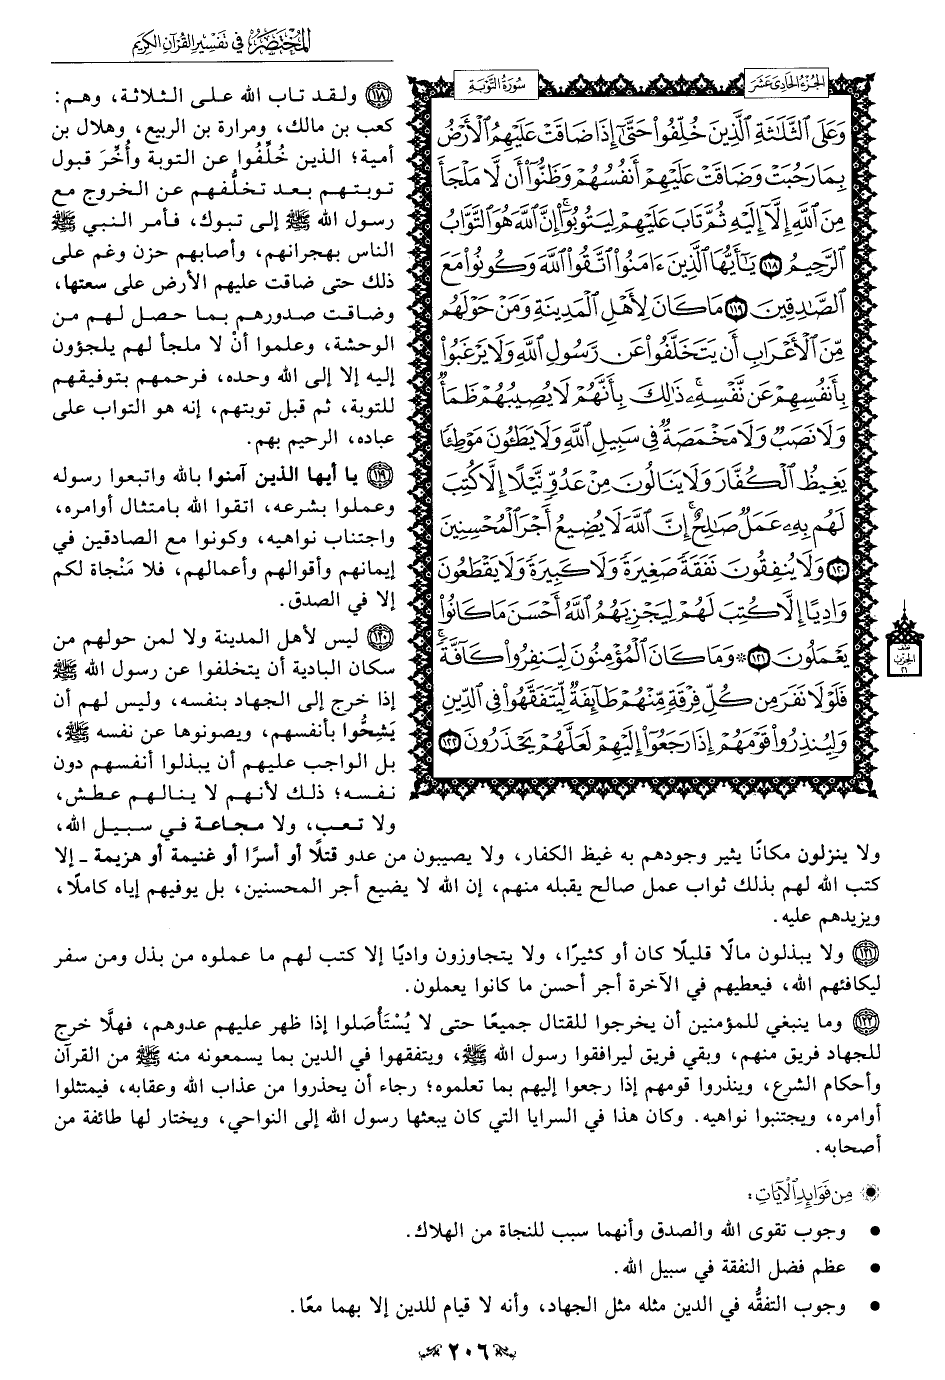 المختصر في تفسير القرآن الكريم
الجزء الحادي عشر
سورة التوبة
وَعَلَى ٱلثَّلَٰثَةِ ٱلَّذِينَ خُلِّفُوا۟ حَتَّىٰٓ إِذَا ضَاقَتْ عَلَيْهِمُ ٱلْأَرْضُ
بِمَا رَحُبَتْ وَضَاقَتْ عَلَيْهِمْ أَنفُسُهُمْ وَظَنُّوٓا۟ أَن لَّا مَلْجَأَ
مِنَ ٱللَّهِ إِلَّآ إِلَيْهِ ثُمَّ تَابَ عَلَيْهِمْ لِيَتُوبُوٓا۟ ۚ إِنَّ ٱللَّهَ هُوَ ٱلتَّوَّابُ
ٱلرَّحِيمُ ١١٨ يَٰٓأَيُّهَا ٱلَّذِينَ ءَامَنُوا۟ ٱتَّقُوا۟ ٱللَّهَ وَكُونُوا۟ مَعَ
ٱلصَّٰدِقِينَ ١١٩ مَا كَانَ لِأَهْلِ ٱلْمَدِينَةِ وَمَنْ حَوْلَهُم
مِّنَ ٱلْأَعْرَابِ أَن يَتَخَلَّفُوا۟ عَن رَّسُولِ ٱللَّهِ وَلَا يَرْغَبُوا۟
بِأَنفُسِهِمْ عَن نَّفْسِهِۦ ۚ ذَٰلِكَ بِأَنَّهُمْ لَا يُصِيبُهُمْ ظَمَأٌ
وَلَا نَصَبٌ وَلَا مَخْمَصَةٌ فِى سَبِيلِ ٱللَّهِ وَلَا يَطَـُٔونَ مَوْطِئًا
يَغِيظُ ٱلْكُفَّارَ وَلَا يَنَالُونَ مِنْ عَدُوٍّ نَّيْلًا إِلَّا كُتِبَ
لَهُم بِهِۦ عَمَلٌ صَٰلِحٌ ۚ إِنَّ ٱللَّهَ لَا يُضِيعُ أَجْرَ ٱلْمُحْسِنِينَ
١٢٠ وَلَا يُنفِقُونَ نَفَقَةً صَغِيرَةً وَلَا كَبِيرَةً وَلَا يَقْطَعُونَ
وَادِيًا إِلَّا كُتِبَ لَهُمْ لِيَجْزِيَهُمُ ٱللَّهُ أَحْسَنَ مَا كَانُوا۟
يَعْمَلُونَ ١٢١ ۞ وَمَا كَانَ ٱلْمُؤْمِنُونَ لِيَنفِرُوا۟ كَآفَّةً ۚ
فَلَوْلَا نَفَرَ مِن كُلِّ فِرْقَةٍ مِّنْهُمْ طَآئِفَةٌ لِّيَتَفَقَّهُوا۟ فِى ٱلدِّينِ
وَلِيُنذِرُوا۟ قَوْمَهُمْ إِذَا رَجَعُوٓا۟ إِلَيْهِمْ لَعَلَّهُمْ يَحْذَرُونَ ١٢٢
١١٨ ولقد تاب الله على الثلاثة، وهم:
كعب بن مالك، ومرارة بن الربيع، وهلال بن
أمية؛ الذين خُلِّفُوا عن التوبة وأُخِّرَ قبول
توبتهم بعد تخلُّفهم عن الخروج مع
رسول الله ﷺ إلى تبوك، فأمر النبي ﷺ
الناس بهجرانهم، وأصابهم حزن وغم على
ذلك حتى ضاقت عليهم الأرض على سعتها،
وضاقت صدورهم بما حصل لهم من
الوحشة، وعلموا أنْ لا ملجأ لهم يلجؤون
إليه إلا إلى الله وحده، فرحمهم بتوفيقهم
للتوبة، ثم قبل توبتهم، إنه هو التواب على
عباده، الرحيم بهم.
١١٩ يا أيها الذين آمنوا بالله واتبعوا رسوله
وعملوا بشرعه، اتقوا الله بامتثال أوامره،
واجتناب نواهيه، وكونوا مع الصادقين في
إيمانهم وأقوالهم وأعمالهم، فلا مَنْجاة لكم
إلا في الصدق.
١٢٠ ليس لأهل المدينة ولا لمن حولهم من
سكان البادية أن يتخلفوا عن رسول الله ﷺ
إذا خرج إلى الجهاد بنفسه، وليس لهم أن
يَشِحُّوا بأنفسهم، ويصونوها عن نفسه ﷺ،
بل الواجب عليهم أن يبذلوا أنفسهم دون
نفسه؛ ذلك لأنهم لا ينالهم عطش،
ولا تعب، ولا مجاعة في سبيل الله،
ولا ينزلون مكانًا يثير وجودهم به غيظ الكفار، ولا يصيبون من عدو قتلًا أو أسرًا أو غنيمة أو هزيمة ـ إلا
كتب الله لهم بذلك ثواب عمل صالح يقبله منهم، إن الله لا يضيع أجر المحسنين، بل يوفيهم إياه كاملًا،
ويزيدهم عليه.
١٢١ ولا يبذلون مالًا قليلًا كان أو كثيرًا، ولا يتجاوزون واديًا إلا كتب لهم ما عملوه من بذل ومن سفر
ليكافئهم الله، فيعطيهم في الآخرة أجر أحسن ما كانوا يعملون.
١٢٢ وما ينبغي للمؤمنين أن يخرجوا للقتال جميعًا حتى لا يُسْتَأصَلوا إذا ظهر عليهم عدوهم، فهلَّا خرج
للجهاد فريق منهم، وبقي فريق ليرافقوا رسول الله ﷺ، ويتفقهوا في الدين بما يسمعونه منه ﷺ من القرآن
وأحكام الشرع، وينذروا قومهم إذا رجعوا إليهم بما تعلموه؛ رجاء أن يحذروا من عذاب الله وعقابه، فيمتثلوا
أوامره، ويجتنبوا نواهيه. وكان هذا في السرايا التي كان يبعثها رسول الله إلى النواحي، ويختار لها طائفة من
أصحابه.
من فوائد الآيات:
• وجوب تقوى الله والصدق وأنهما سبب للنجاة من الهلاك.
• عظم فضل النفقة في سبيل الله.
• وجوب التفقُّه في الدين مثله مثل الجهاد، وأنه لا قيام للدين إلا بهما معًا.
٢٠٦